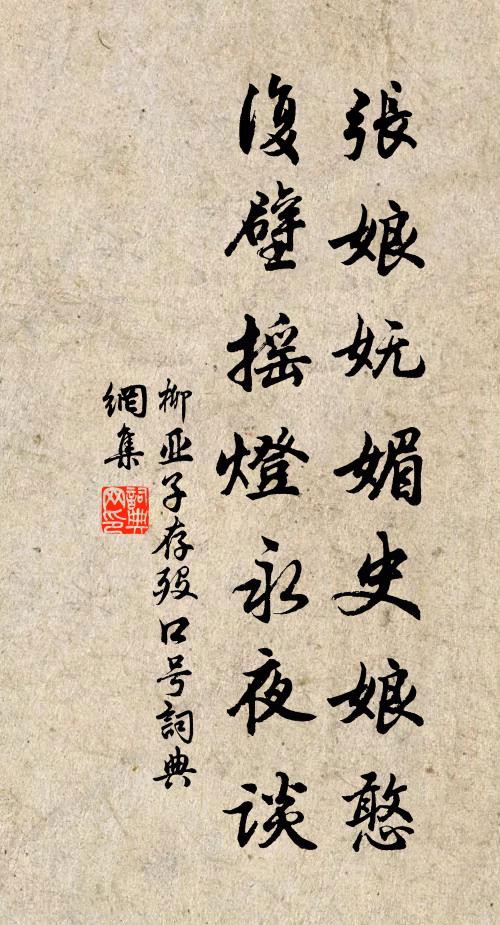 張娘妩媚史娘憨
復壁摇燈永夜談
柳亚子存殁口号詞典
網集
詞典
网印